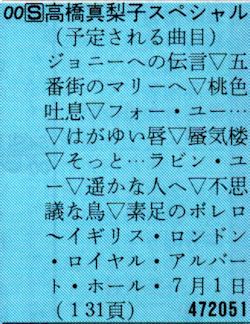 00🅂高橋真梨子スペシャル
(予定される曲目)
ジョニーへの伝言▽五
番街のマリーへ▽桃色
吐息▽フォー・ユー…
▽はがゆい唇▽蜃気楼
▽そっと…ラビン・ユ
ー▽遥かな人へ▽不思
議な鳥▽素足のボレロ
~イギリス・ロンドン
・ロイヤル・アルバー
ト・ホール・7月1日
(131頁) 472051